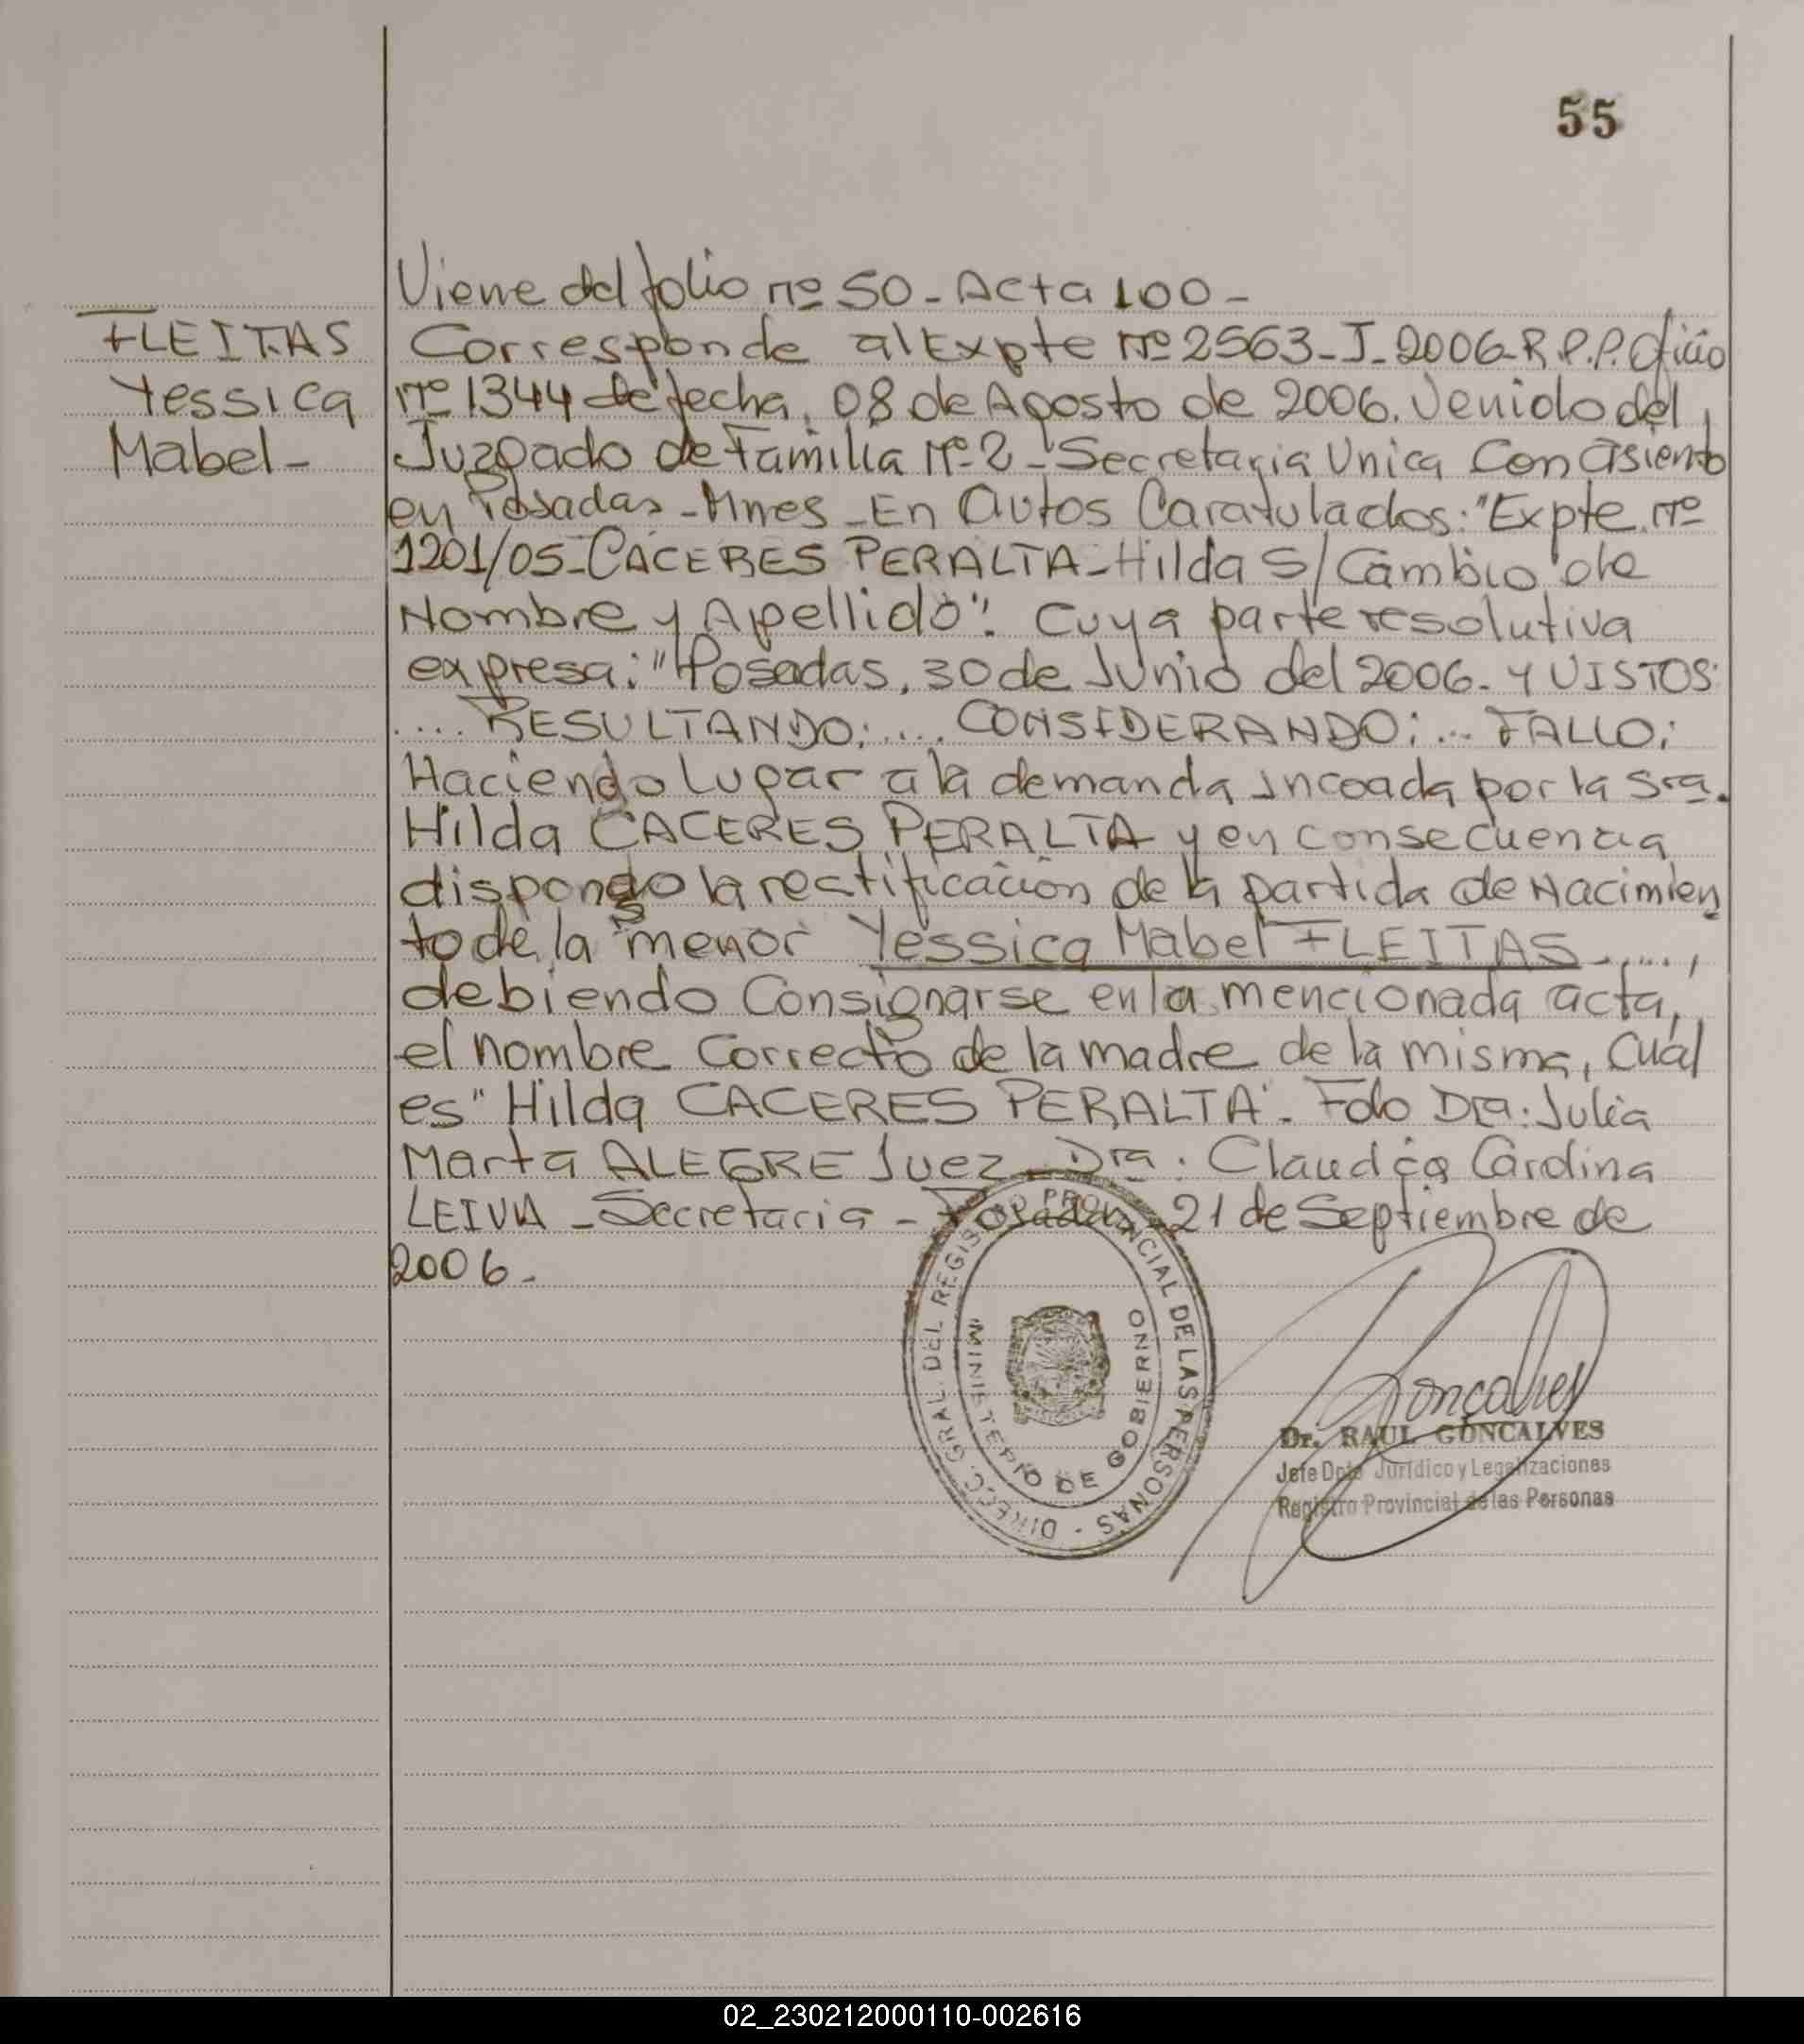 55
Viene del folio nº 50 - Acta 100 -
FLEITAS
Yessica
Mabel -
Corresponde al Expte nº 2563 - J - 2006 - R.P.P. Oficio
nº 1344 de fecha, 08 de Agosto de 2006. Venido del
Juzgado de Familia nº 2 - Secretaria Unica Con asiento
en Posadas - Mnes - En autos Caratulados: "Expte. nº
1201/05 - CACERES PERALTA - Hilda S/ Cambio de
Nombre y Apellido". Cuya parte resolutiva
expresa: "Posadas, 30 de Junio del 2006 - Y VISTOS:
.... RESULTANDO: .... CONSIDERANDO: ... FALLO:
Haciendo lugar a la demanda incoada por la Sra.
Hilda CACERES PERALTA y en consecuencia
dispongo la rectificación de la partida de Nacimien
to de la menor Yessica Mabel FLEITAS ......,
debiendo Consignarse en la mencionada acta,
el nombre Correcto de la madre de la misma, Cual
es "Hilda CACERES PERALTA". Fdo Dra: Julia
Marta ALEGRE Juez - Dra. Claudia Carolina
LEIVA - Secretaria - Posadas, 21 de Septiembre de
2006 -
DIRECC. GRAL. DEL REGISTRO PROVINCIAL DE LAS PERSONAS -
MINISTERIO DE GOBIERNO
Goncalves
Dr. RAUL GONCALVES
Jefe Dpto Jurídico y Legalizaciones
Registro Provincial de las Personas
02_230212000110-002616